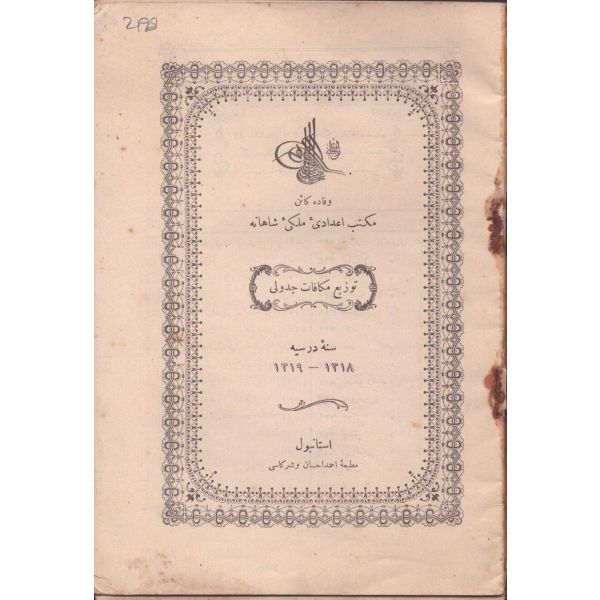 2198
وفاده كائن
مكتب اعدادئ ملكئ شاهانه
توزيع مكافات جدولى
سنۀ درسيه
١٣١٨ – ١٣١٩
استانبول
مطبعۀ احمد احسان وشركاسى